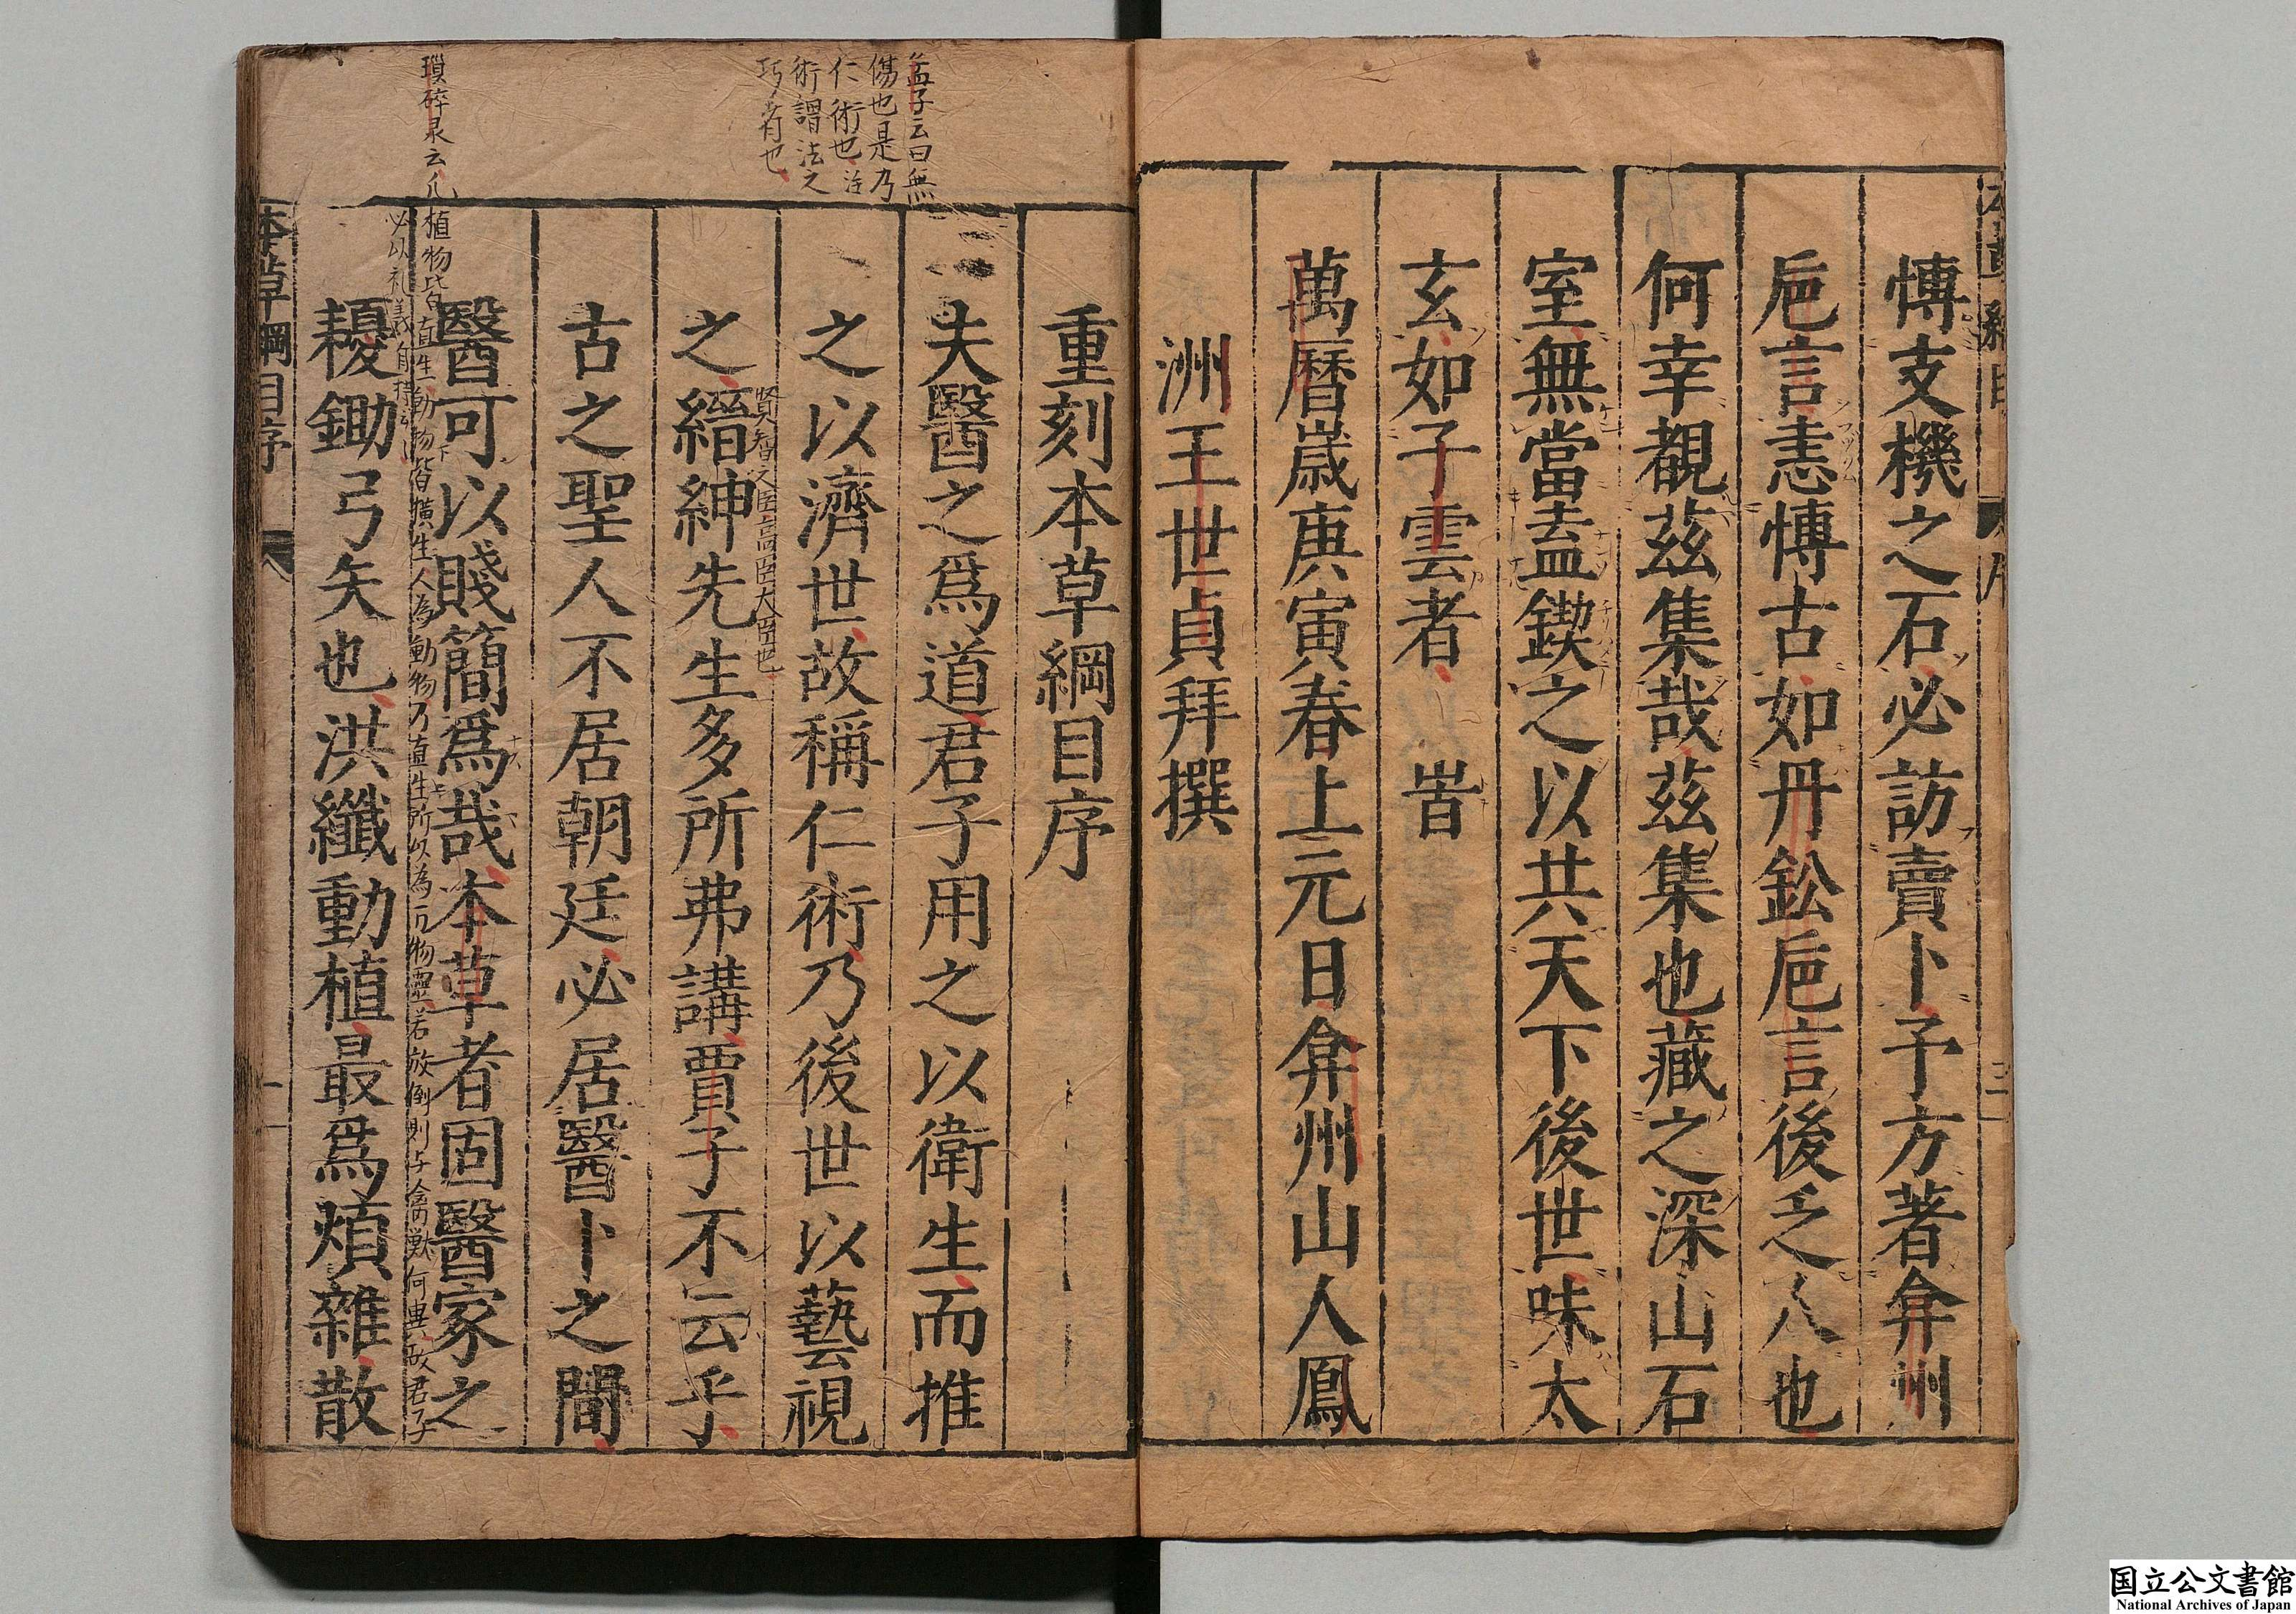 愽支機之石必訪賣卜予方著弇州
巵言恚愽古如丹鈆巵言後乏人也
何幸覩茲集哉茲集也藏之深山石
室無當盍鍥之以共天下後世味太
玄如子雲者 旹
萬曆歲庚寅春上元日弇州山人鳳
洲王世貞拜撰
重刻本草綱目序
夫醫之爲道君子用之以衛生而推
之以濟世故稱仁術乃後世以藝視
之縉紳先生多所弗講賈子不云乎
古之聖人不居朝廷必居醫卜之間
醫可以賤簡爲哉本草者固醫家之
耰鋤弓矢也洪纖動植最爲煩雜散
本草綱目序
孟子云曰無
傷也是乃
仁術也注
術謂法之
巧者也
瑣碎录云凡植物皆直生動物皆横生人為動物乃直生所以為万物靈若放倒則与禽獸何異故君子
必以礼義自持
国立公文書館
National Archives of Japan